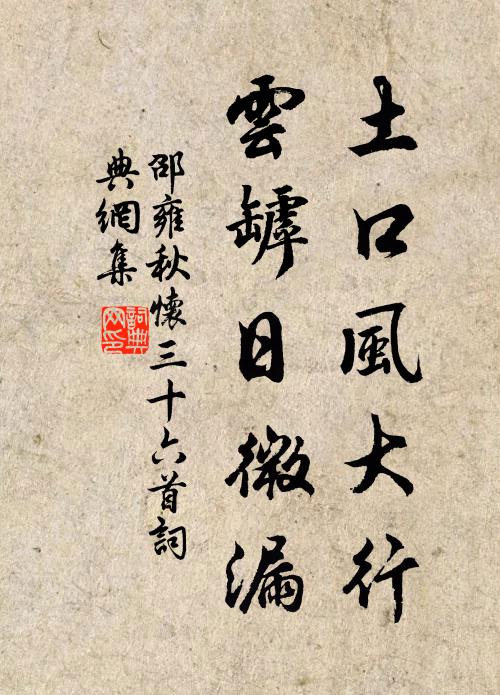 土口風大行
雲罅日微漏
邵雍秋懷三十六首詞
典網集
詞典
网印